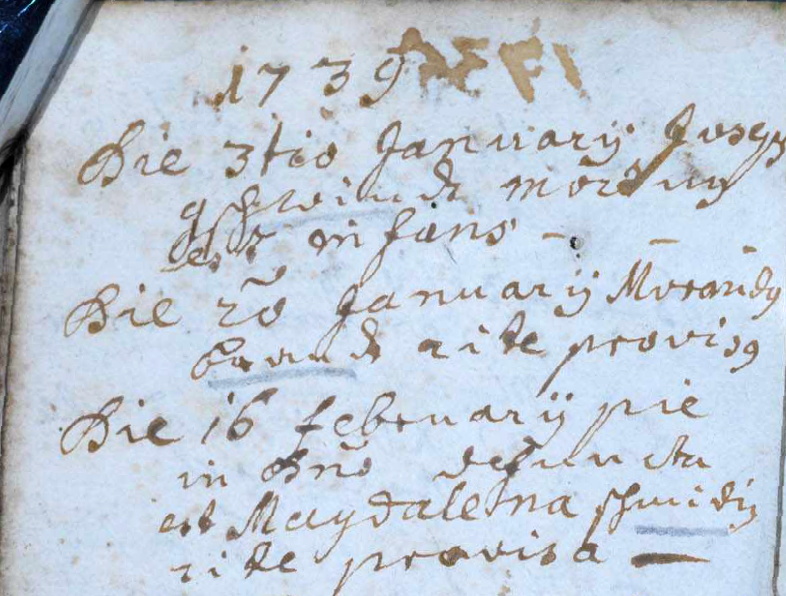 1739
Die 3tio January Joseph
gschwindt mortuus
est infans -
Die 20 January Morandus
brandt rite provisus
Die 16 februarij pie
in Dño defuncta
est Magdalena schmidin
rite provisa -